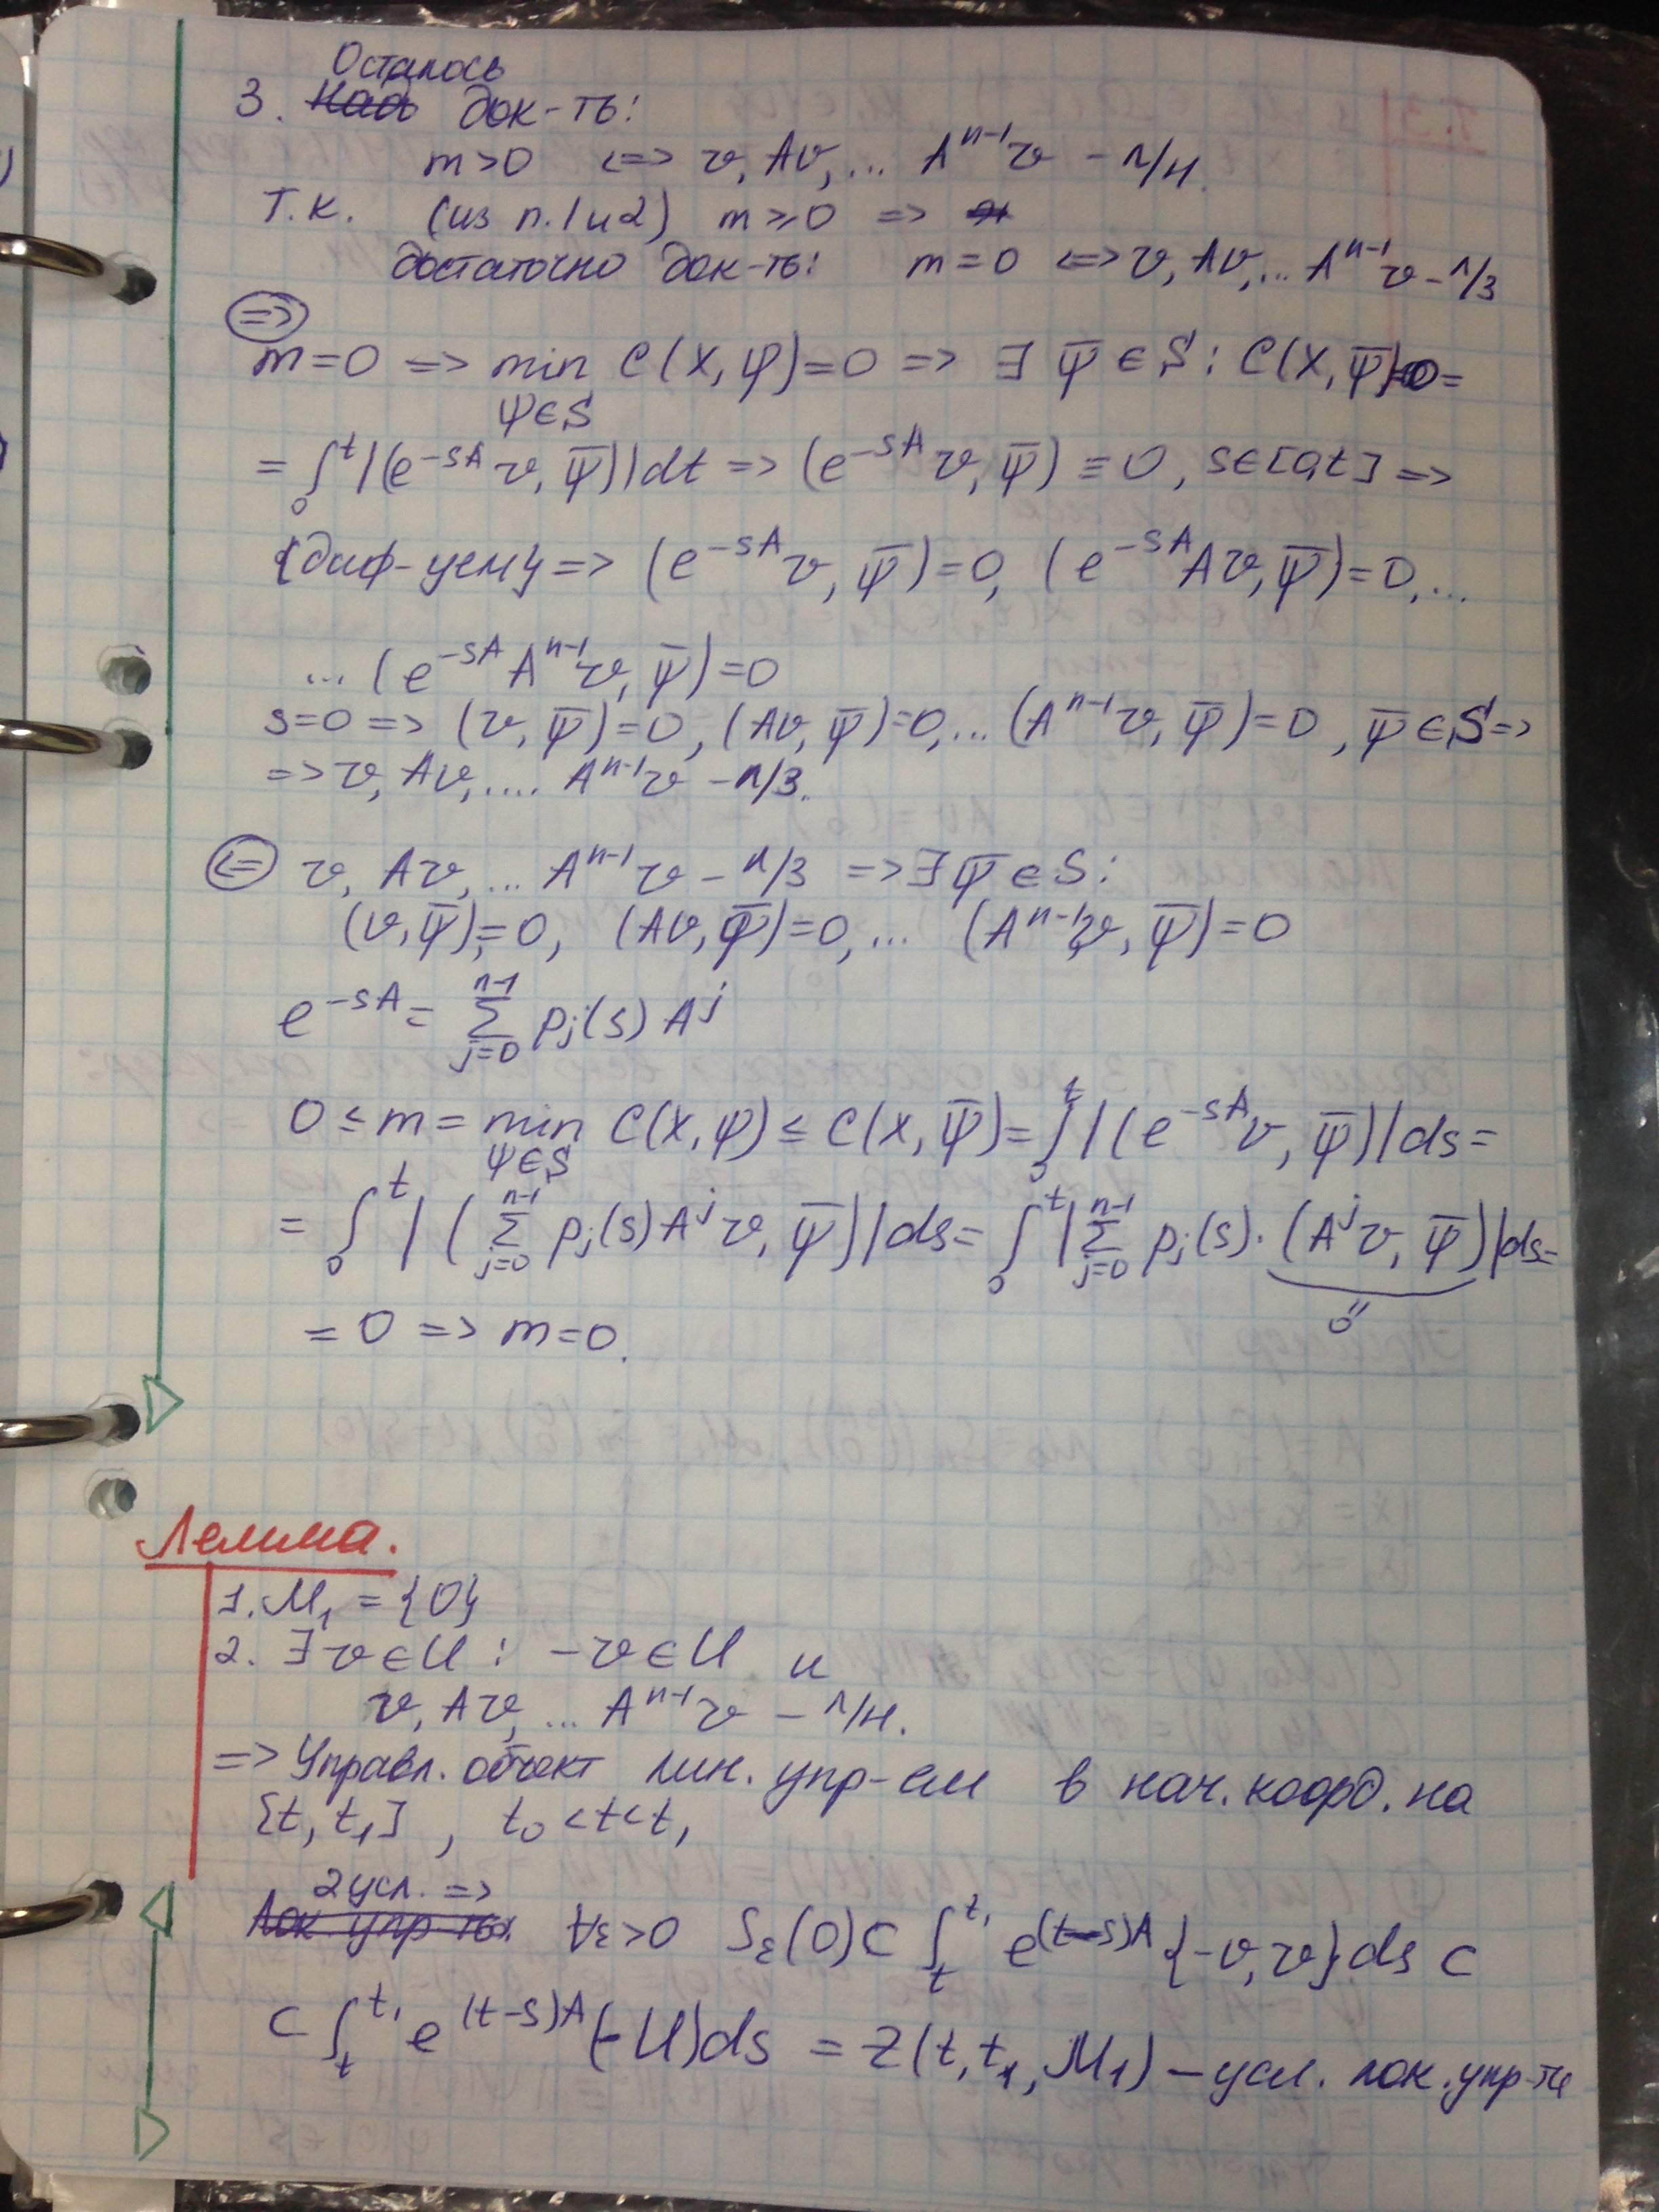 Осталось
3. ~~Надо~~ док-ть:
m>0 <=> v, Av, ... Aⁿ⁻¹v - л/н.
Т.к. (из п.1 и 2) m ⩾ 0 =>
достаточно док-ть: m=0 <=> v, Av, ... Aⁿ⁻¹v - л/з
(=>)
m=0 => min C(X, ψ)=0 => ∃ ψ̄ ∈ S : C(X, ψ̄)=0=
ψ∈S
= ∫₀ᵗ |(e⁻ˢᴬ v, ψ̄)|dt => (e⁻ˢᴬ v, ψ̄) ≡ 0, s∈[0,t] =>
{диф-уем} => (e⁻ˢᴬ v, ψ̄)=0, (e⁻ˢᴬ Av, ψ̄)=0, ...
... (e⁻ˢᴬ Aⁿ⁻¹v, ψ̄)=0
s=0 => (v, ψ̄)=0, (Av, ψ̄)=0, ... (Aⁿ⁻¹v, ψ̄)=0, ψ̄ ∈ S =>
=> v, Av, .... Aⁿ⁻¹v - л/з.
(<=) v, Av, ... Aⁿ⁻¹v - л/з => ∃ ψ̄ ∈ S :
(v, ψ̄)=0, (Av, ψ̄)=0, ... (Aⁿ⁻¹v, ψ̄)=0
e⁻ˢᴬ = ∑_{j=0}^{n-1} pⱼ(s) Aʲ
0 ≤ m = min_{ψ∈S} C(X, ψ) ≤ C(X, ψ̄) = ∫₀ᵗ |(e⁻ˢᴬ v, ψ̄)|ds =
= ∫₀ᵗ |(∑_{j=0}^{n-1} pⱼ(s)Aʲv, ψ̄)|ds = ∫₀ᵗ |∑_{j=0}^{n-1} pⱼ(s)·(Aʲv, ψ̄)|ds=
"0
= 0 => m=0.
Лемма.
1. M₁ = {0}
2. ∃ v∈U : -v∈U и
v, Av, ... Aⁿ⁻¹v - л/н.
=> Управл. объект лин. упр-ем в нач. коорд. на
[t, t₁], t₀<t<t₁
2 усл. =>
~~Лок. упр-ть~~ ∀ε>0 S_ε(0) ⊂ ∫_t^{t₁} e^{(t-s)A}{-v, v}ds ⊂
⊂ ∫_t^{t₁} e^{(t-s)A}(-U)ds = Z(t, t₁, M₁) - усл. лок. упр-ти